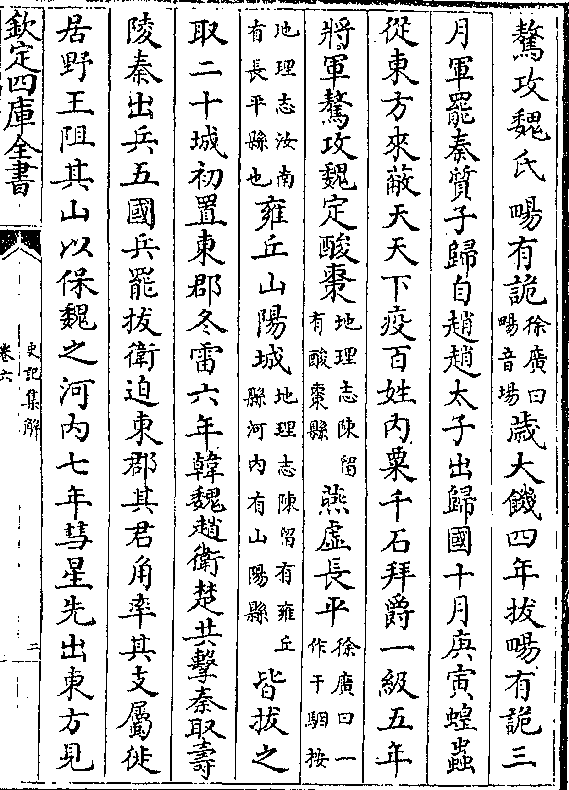 驁攻魏氏畼有詭徐廣曰畼音場歲大饑四年拔畼有詭三
月軍罷秦質子歸自趙趙太子出歸國十月庚寅蝗蟲
從東方來蔽天天下疫百姓内粟千石拜爵一級五年
將軍驁攻魏定酸棗地理志陳留有酸棗縣燕虛長平徐廣曰一作干駰按
地理志汝南有長平縣也雍丘山陽城地理志陳留有雍丘縣河内有山陽縣皆拔之
取二十城初置東郡冬雷六年韓魏趙衛楚共擊秦取壽
陵秦出兵五國兵罷拔衛迫東郡其君角率其支屬徙
居野王阻其山以保魏之河内七年彗星先出東方見
欽定四庫全書
史記集解
卷六
二